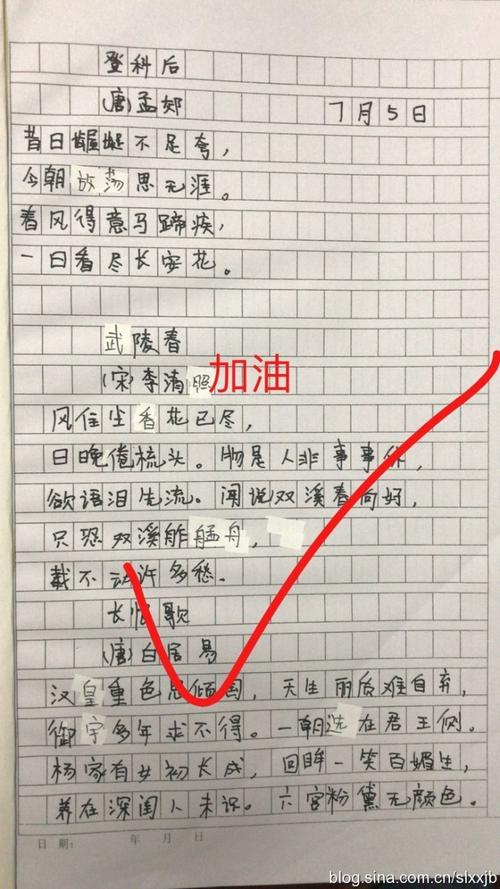 登科后
(唐)孟郊 7月5日
昔日龌龊不足夸，
今朝放荡思无涯。
春风得意马蹄疾，
一日看尽长安花。
武陵春
(宋)李清照
加油
风住尘香花已尽，
日晚倦梳头。物是人非事事休，
欲语泪先流。闻说双溪春尚好，
只恐双溪舴艋舟，
载不动许多愁.
长恨歌
(唐)白居易
汉皇重色思倾国，天生丽质难自弃，
御宇多年求不得。一朝选在君王侧。
杨家有女初长成，回眸一笑百媚生，
养在深闺人未识。六宫粉黛无颜色。
日期： 年 月 日
blog.sina.com.cn/slxxjb